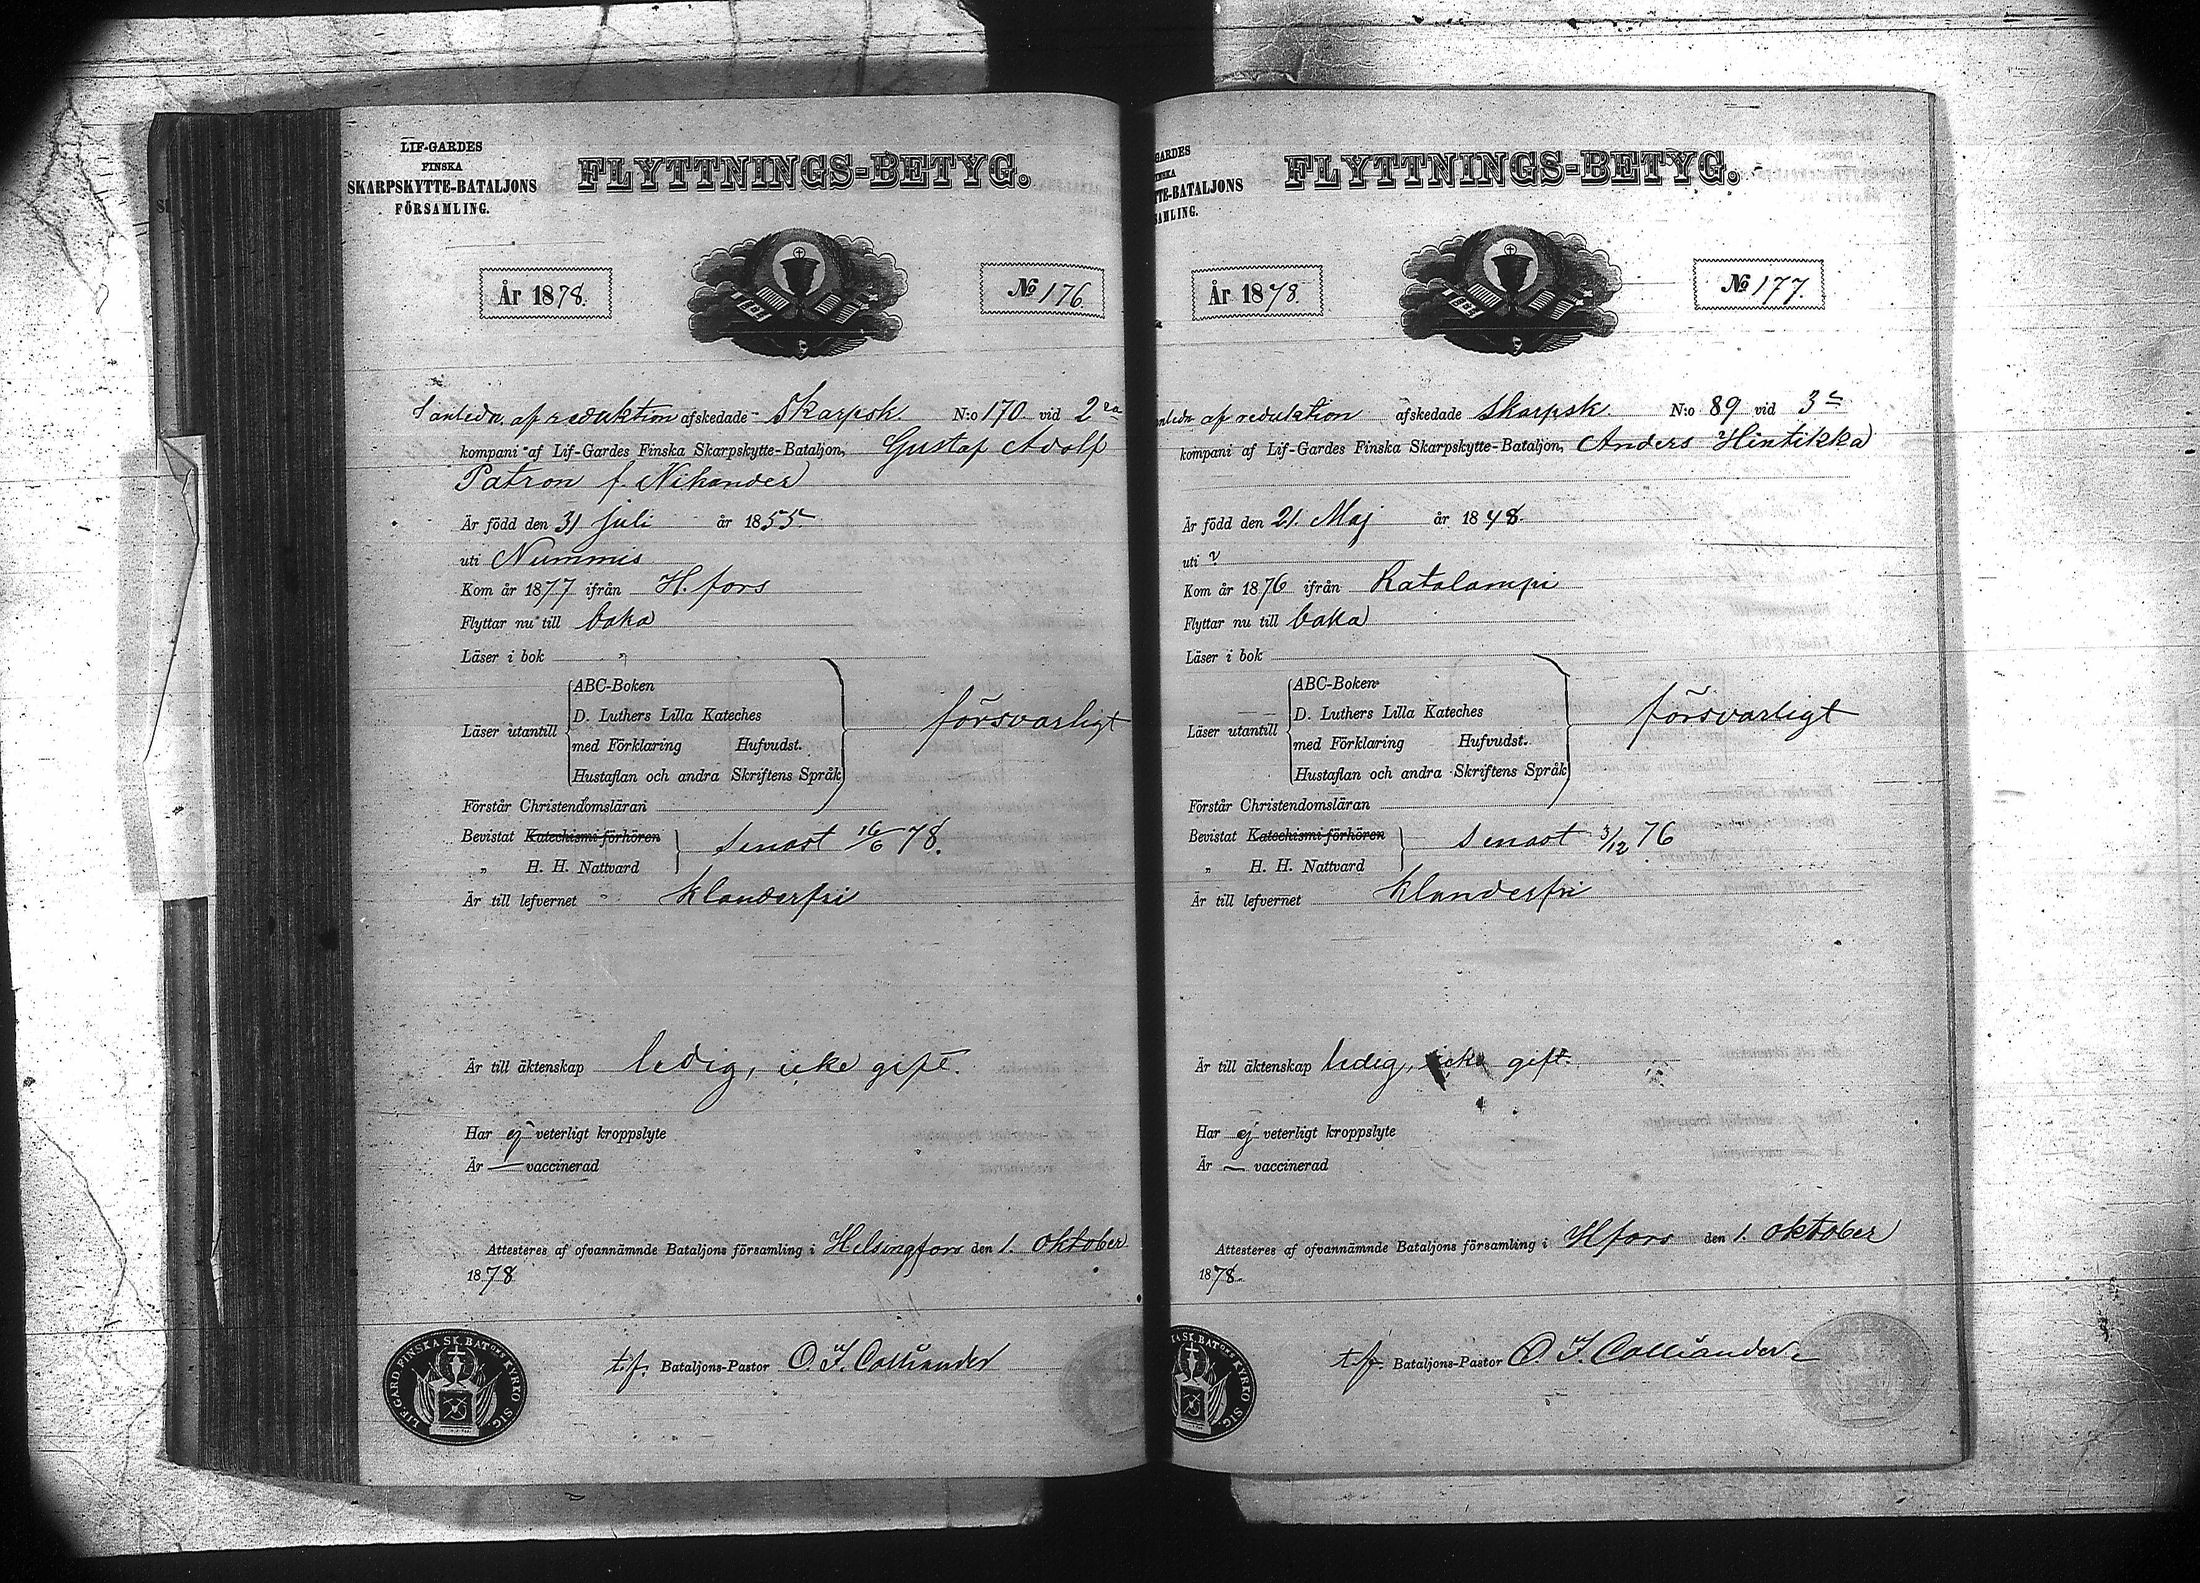 LIF-GARDES
FINSKA
SKARPSKYTTE-BATALJONS
FÖRSAMLING.
FLYTTNINGS-BETYG.
År 1878.
No 176
I anledn. af reduktion afskedade Skarpsk. N:o 170 vid 2ra
kompani af Lif-Gardes Finska Skarpskytte-Bataljon, Gustaf Adolf
Patron f. Nikander
Är född den 31 juli år 1855
uti Nummis
Kom år 1877 ifrån H.fors
Flyttar nu till baka
Läser i bok "
Läser utantill
ABC-Boken
D. Luthers Lilla Kateches
med Förklaring Hufvudst.
Hustaflan och andra Skriftens Språk
försvarligt
Förstår Christendomsläran
Bevistat Katechismi-förhören
„ H. H. Nattvard
senast 16/6 78.
Är till lefvernet klanderfri
Är till äktenskap ledig, icke gift.
Har ej veterligt kroppslyte
Är — vaccinerad
Attesteres af ofvannämnde Bataljons församling i Helsingfors den 1. Oktober
1878
t.f. Bataljons-Pastor O. I. Colliander
LIF.GARD.FINSKA SK.BATONS KYRKO SIG.
GARDES
INSKA
TTE-BATALJONS
SAMLING.
FLYTTNINGS-BETYG.
År 1878.
No 177.
anledn af reduktion afskedade Skarpsk. N:o 89 vid 3e
kompani af Lif-Gardes Finska Skarpskytte-Bataljon, Anders Hintikka
Är född den 21. Maj år 1848.
uti ?
Kom år 1876 ifrån Ratalampi
Flyttar nu till baka
Läser i bok
Läser utantill
ABC-Boken
D. Luthers Lilla Kateches
med Förklaring Hufvudst.
Hustaflan och andra Skriftens Språk
försvarligt
Förstår Christendomsläran
Bevistat Katechismi-förhören
„ H. H. Nattvard
senast 3/12 76
Är till lefvernet klanderfri
Är till äktenskap ledig, icke gift.
Har ej veterligt kroppslyte
Är — vaccinerad
Attesteres af ofvannämnde Bataljons församling i Hfors den 1. Oktober
1878.
t.f. Bataljons-Pastor O. I. Colliander
KA SK.BATONS KYRKO SIG.